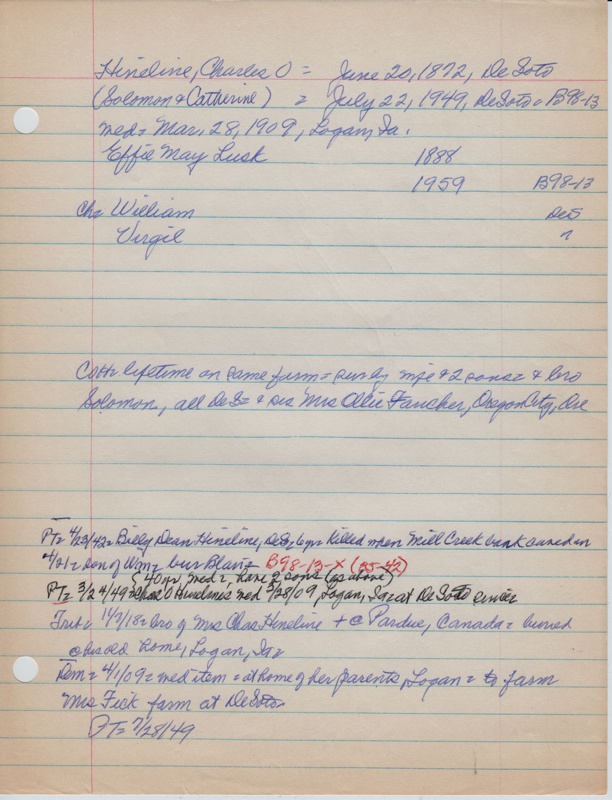 Hineline, Charles O = June 20, 1872, DeSoto
(Solomon & Catherine) = July 22, 1949, DeSoto = B98-13
med = Mar. 28, 1909, Logan, Ia.
Effie May Lusk 1888
1959 B98-13
Ch = William DeS
Virgil ?
lifetime on same farm = surv by wife & 2 sons = & bro
Solomon, all DeS = & sis Mrs Ollie Faucher, Oregon City, Ore
PT = 4/23/42 = Billy Dean Hineline, DeS = 6 yr = killed when Mill Creek bank caved in
4/21 = son of Wm = bur Blair = B98-13-X (35-42)
(40 yr, med =, have 2 sons (as above)
PT = 3/24/49 = Chas O Hineline's med 3/28/09, Logan, Ia = at DeSoto since
Trib = 11/7/18 = bro of Mrs Chas Hineline + @ Pardue, Canada = buried
@ his old home, Logan, Ia =
Dem = 4/1/09 = med item = at home of her parents, Logan = to farm
Mrs Fick farm at DeSoto
PT = 7/28/49